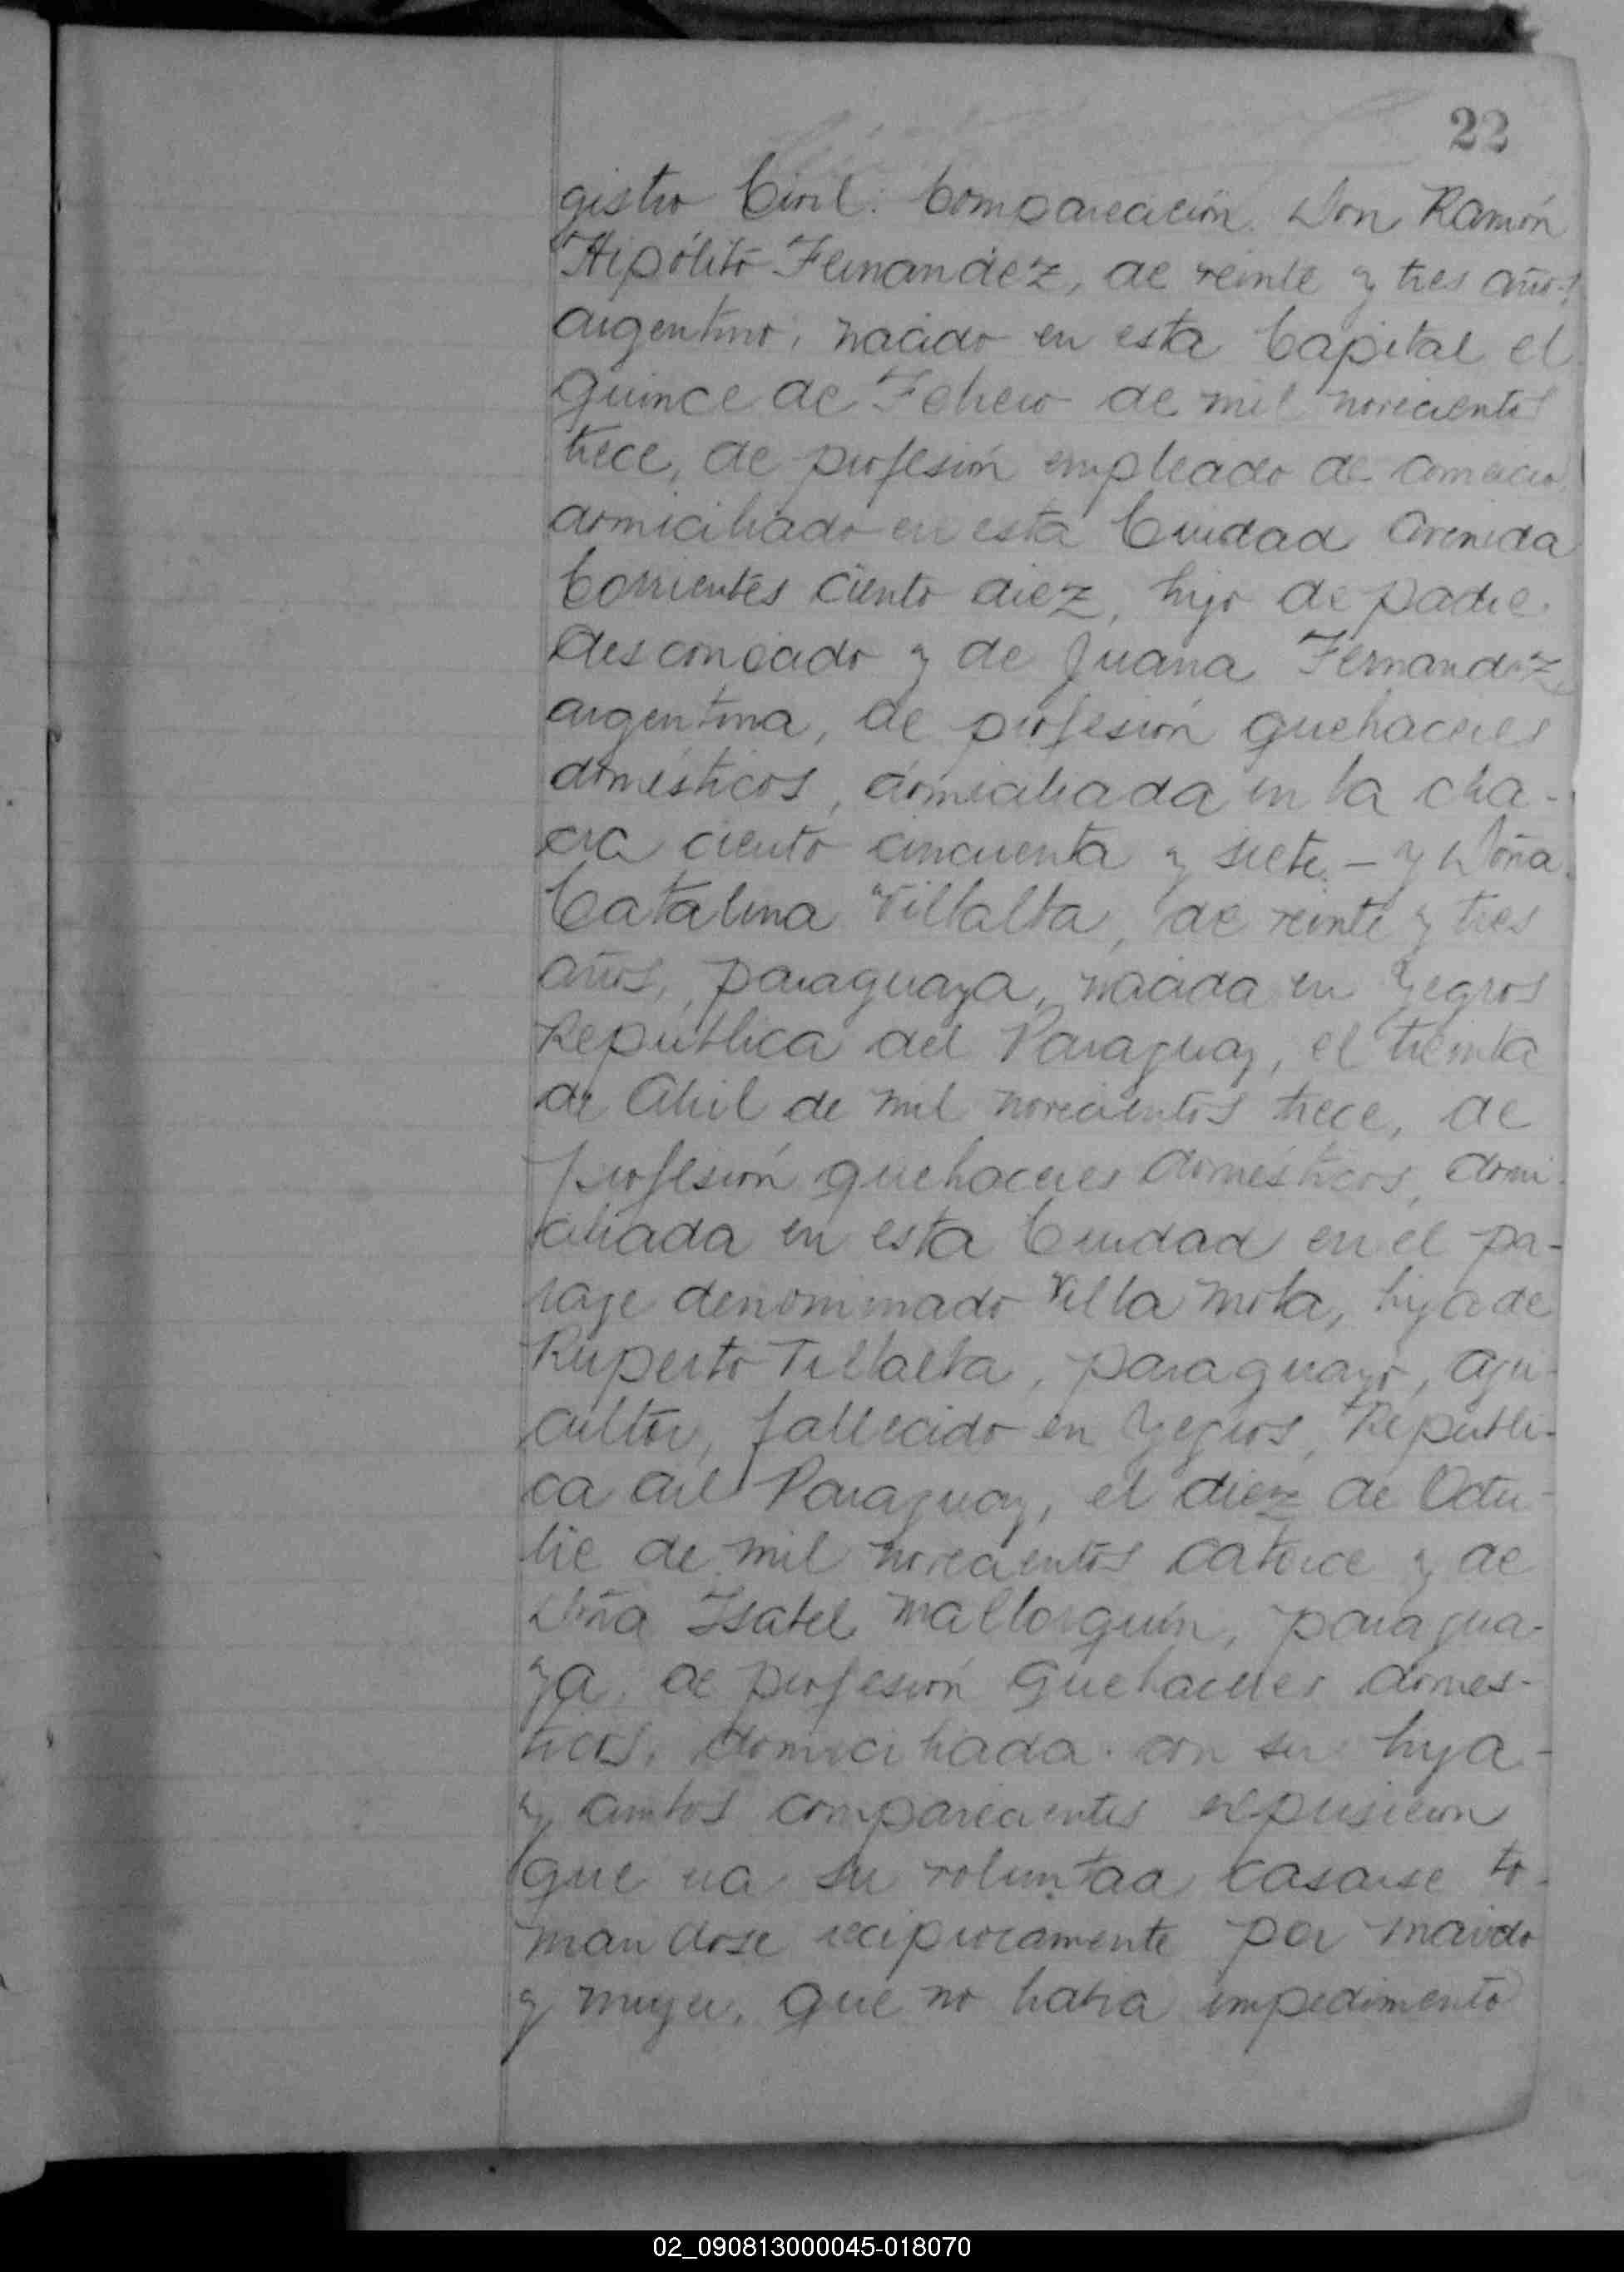 22
gistro Civil: Comparecieron Don Ramón
Hipólito Fernandez, de veinte y tres años,
argentino, nacido en esta Capital el
quince de Febrero de mil novecientos
trece, de profesión empleado de comercio,
domiciliado en esta Ciudad Avenida
Corrientes ciento diez, hijo de padre
desconocido y de Juana Fernandez,
argentina, de profesión quehaceres
domésticos, domiciliada en la cha-
cra ciento cincuenta y siete - y Doña
Catalina Villalta, de veinte y tres
años, paraguaya, nacida en Yegros
República del Paraguay, el treinta
de Abril de mil novecientos trece, de
profesión quehaceres domésticos, domi-
ciliada en esta Ciudad en el pa-
raje denominado Villa Mota, hija de
Ruperto Villalta, paraguayo, agri-
cultor, fallecido en Yegros, Repúbli-
ca del Paraguay, el diez de Octu-
bre de mil novecientos catorce y de
Doña Isabel Mallorquín, paragua-
ya, de profesión quehaceres domés-
ticos, domiciliada con su hija -
y ambos comparecientes expusieron
que era su voluntad casarse to-
mandose reciprocamente por marido
y mujer, que no habia impedimento
02_090813000045-018070